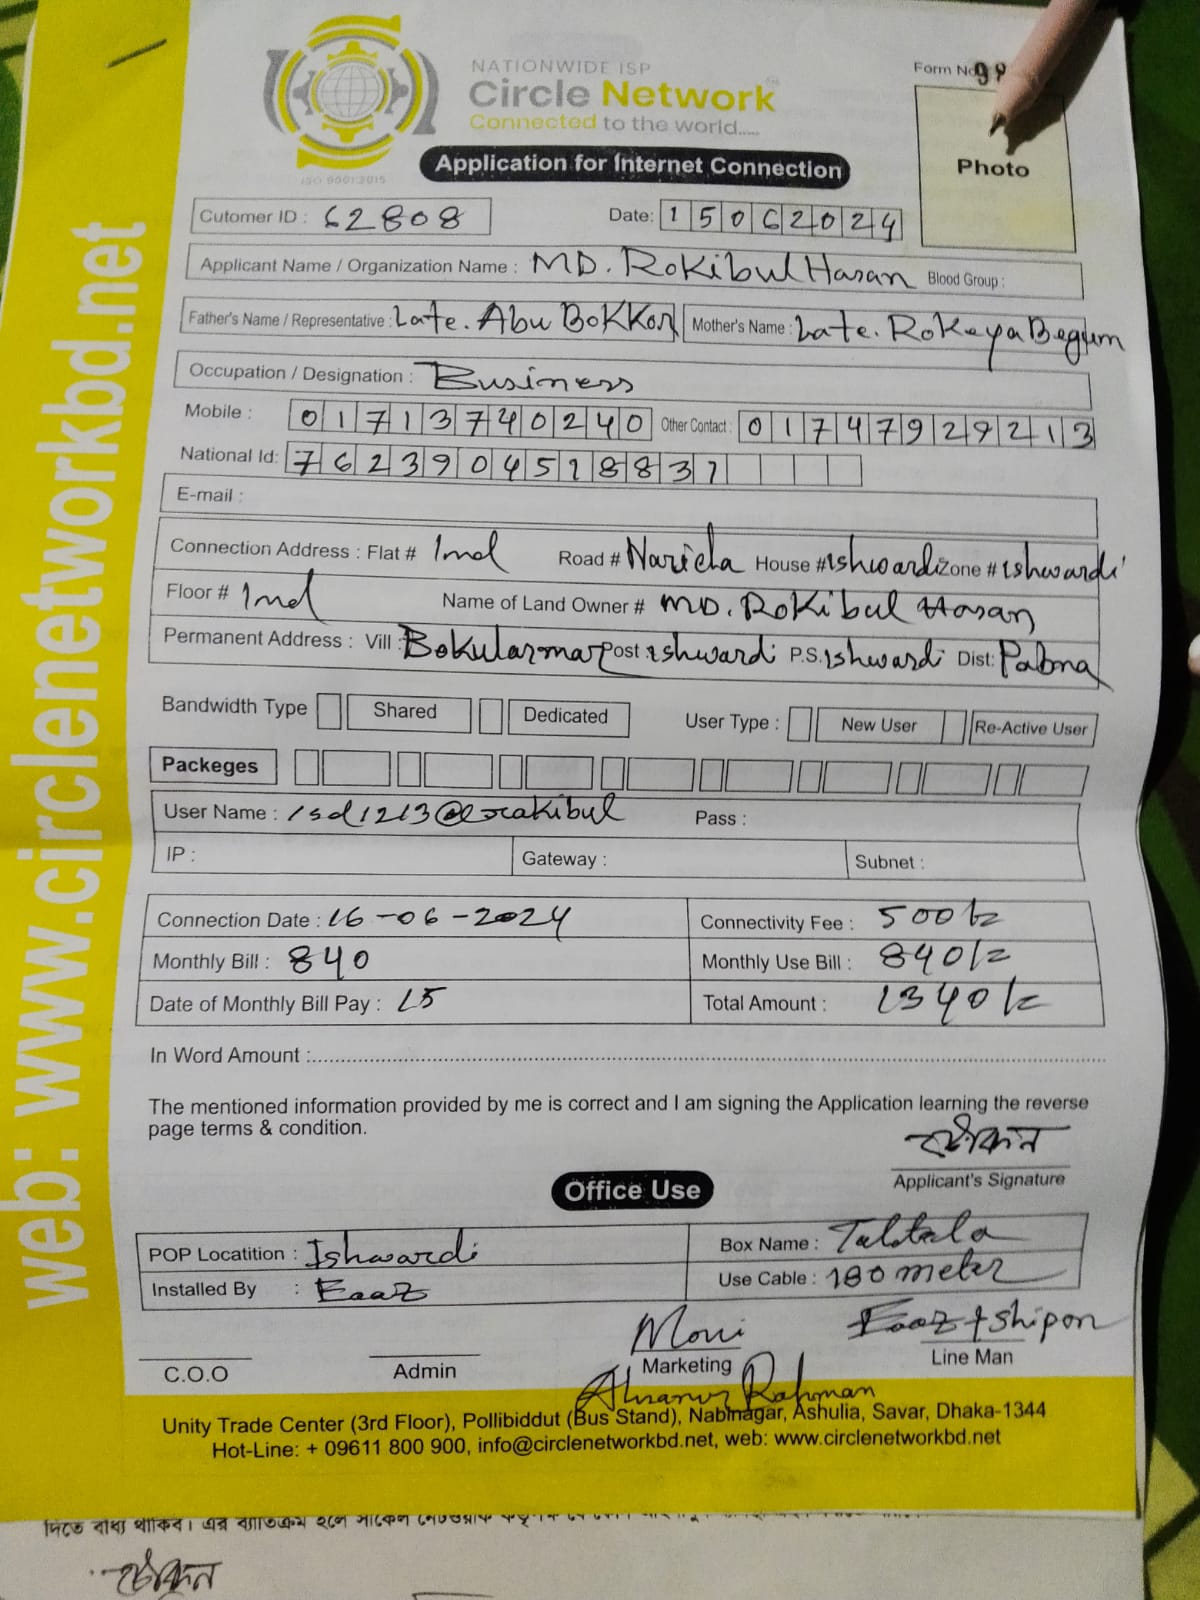 NATIONWIDE ISP
Circle Network
Connected to the world.....
ISO 9001:2015
Form No
Photo
Application for Internet Connection
Cutomer ID : 62808 Date: 15062024
Applicant Name / Organization Name : MD. Rokibul Hasan Blood Group :
Father's Name / Representative : Late. Abu Bokkor Mother's Name : Late. Rokeya Begum
Occupation / Designation : Business
Mobile : 01713740240 Other Contact : 01747929213
National Id: 7623904518831
E-mail :
Connection Address : Flat # Ind Road # Naricha House # Ishwardi Zone # Ishwardi
Floor # Ind Name of Land Owner # MD. Rokibul Hasan
Permanent Address : Vill : Bokularmar Post : Ishwardi P.S. Ishwardi Dist: Pabna
Bandwidth Type Shared Dedicated User Type : New User Re-Active User
Packeges
User Name : Pass :
IP : Gateway : Subnet :
Connection Date : 16-06-2024 Connectivity Fee : 500/=
Monthly Bill : 840 Monthly Use Bill : 840/=
Date of Monthly Bill Pay : 15 Total Amount : 1340/=
In Word Amount :
The mentioned information provided by me is correct and I am signing the Application learning the reverse
page terms & condition.
Applicant's Signature
Office Use
POP Locatition : Ishwardi Box Name : Taltala
Installed By : Eaaz Use Cable : 180 meter
Moni Eaaz + Shipon
C.O.O Admin Marketing Line Man
Rahman
Unity Trade Center (3rd Floor), Pollibiddut (Bus Stand), Nabinagar, Ashulia, Savar, Dhaka-1344
Hot-Line: + 09611 800 900, info@circlenetworkbd.net, web: www.circlenetworkbd.net
web: www.circlenetworkbd.net